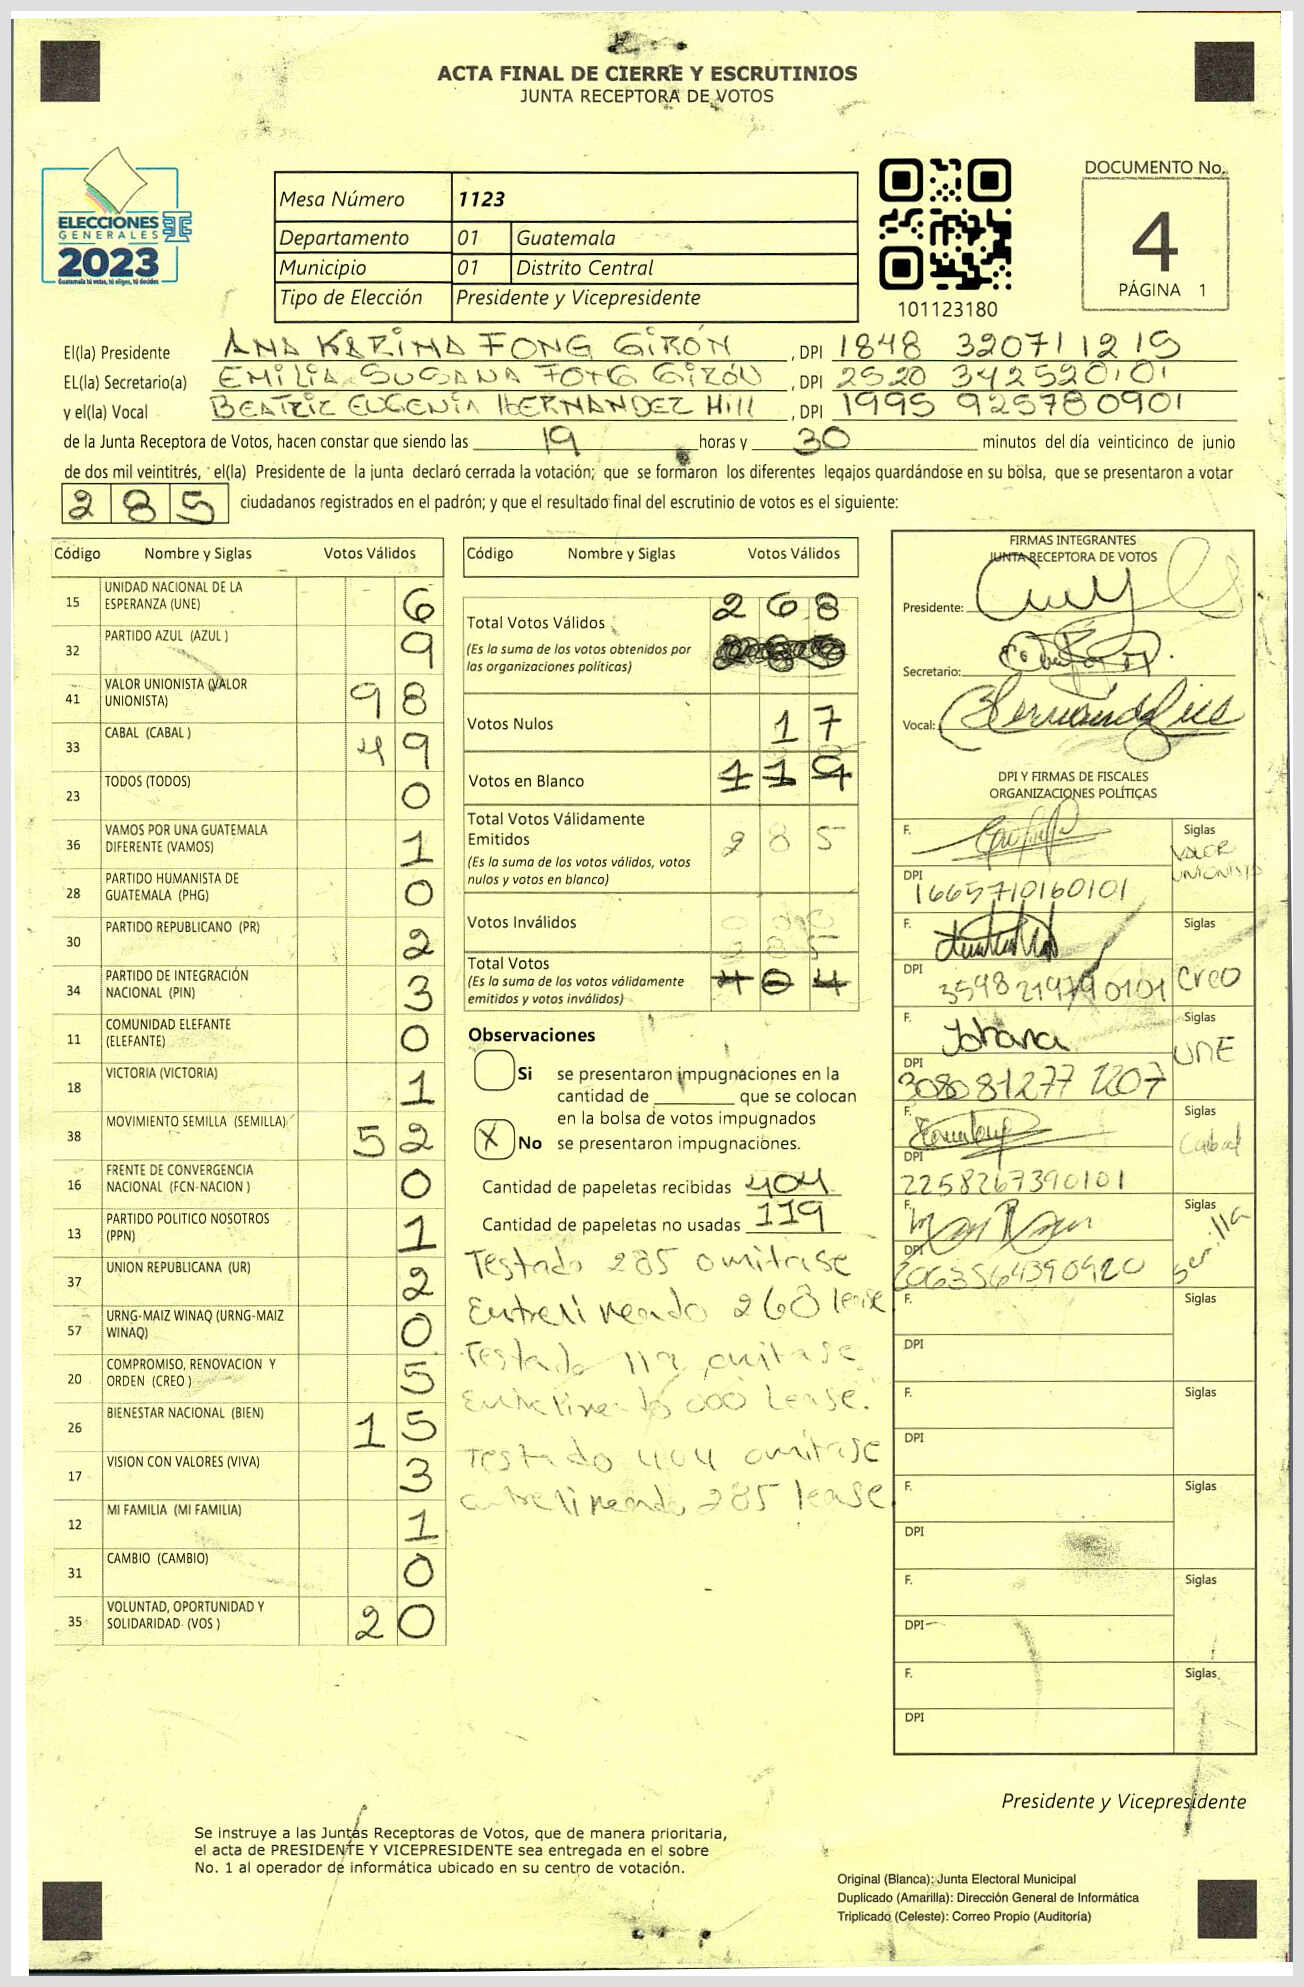 ACTA FINAL DE CIERRE Y ESCRUTINIOS
JUNTA RECEPTORA DE VOTOS
ELECCIONES
GENERALES
2023
Guatemala tú votas, tú eliges, tú decides
Mesa Número 1123
Departamento 01 Guatemala
Municipio 01 Distrito Central
Tipo de Elección Presidente y Vicepresidente
101123180
DOCUMENTO No.
4
PÁGINA 1
El(la) Presidente ANA KARINA FONG GIRÓN, DPI 1848 32071 1215
EL(la) Secretario(a) EMILIA SUSANA FONG GIRÓN, DPI 2520 342520101
y el(la) Vocal BEATRIZ EUGENIA HERNANDEZ Hill, DPI 1995 925780901
de la Junta Receptora de Votos, hacen constar que siendo las 19 horas y 30 minutos del día veinticinco de junio
de dos mil veintitrés, el(la) Presidente de la junta declaró cerrada la votación; que se formaron los diferentes legajos guardándose en su bolsa, que se presentaron a votar
285 ciudadanos registrados en el padrón; y que el resultado final del escrutinio de votos es el siguiente:
Código Nombre y Siglas Votos Válidos
15 UNIDAD NACIONAL DE LA ESPERANZA (UNE) 6
32 PARTIDO AZUL (AZUL ) 9
41 VALOR UNIONISTA (VALOR UNIONISTA) 98
33 CABAL (CABAL ) 49
23 TODOS (TODOS) 0
36 VAMOS POR UNA GUATEMALA DIFERENTE (VAMOS) 1
28 PARTIDO HUMANISTA DE GUATEMALA (PHG) 0
30 PARTIDO REPUBLICANO (PR) 2
34 PARTIDO DE INTEGRACIÓN NACIONAL (PIN) 3
11 COMUNIDAD ELEFANTE (ELEFANTE) 0
18 VICTORIA (VICTORIA) 1
38 MOVIMIENTO SEMILLA (SEMILLA) 52
16 FRENTE DE CONVERGENCIA NACIONAL (FCN-NACION ) 0
13 PARTIDO POLITICO NOSOTROS (PPN) 1
37 UNION REPUBLICANA (UR) 2
57 URNG-MAIZ WINAQ (URNG-MAIZ WINAQ) 0
20 COMPROMISO, RENOVACION Y ORDEN (CREO ) 5
26 BIENESTAR NACIONAL (BIEN) 15
17 VISION CON VALORES (VIVA) 3
12 MI FAMILIA (MI FAMILIA) 1
31 CAMBIO (CAMBIO) 0
35 VOLUNTAD, OPORTUNIDAD Y SOLIDARIDAD (VOS ) 20
Código Nombre y Siglas Votos Válidos
Total Votos Válidos 268
(Es la suma de los votos obtenidos por
las organizaciones políticas)
Votos Nulos 17
Votos en Blanco 119
Total Votos Válidamente
Emitidos 285
(Es la suma de los votos válidos, votos
nulos y votos en blanco)
Votos Inválidos
Total Votos 285
(Es la suma de los votos válidamente
emitidos y votos inválidos) 404
Observaciones
Si se presentaron impugnaciones en la
cantidad de ________ que se colocan
en la bolsa de votos impugnados
X No se presentaron impugnaciones.
Cantidad de papeletas recibidas 404
Cantidad de papeletas no usadas 119
Testado 285 omitase
Entrelineado 268 lease
Testado 119 omitase
Entrelineado 000 lease.
Testado 404 omitase
entrelineado 285 lease
FIRMAS INTEGRANTES
JUNTA RECEPTORA DE VOTOS
Presidente:
Secretario:
Vocal:
DPI Y FIRMAS DE FISCALES
ORGANIZACIONES POLÍTICAS
F. Siglas VALOR UNIONISTA
DPI 1665710160101
F. Siglas Creo
DPI 3598 219790101
F. Johana Siglas UNE
DPI 308081277 2207
F. Siglas Cabal
DPI 2258267390101
F. Siglas Semilla
DPI 2063564390920
F. Siglas
DPI
F. Siglas
DPI
F. Siglas
DPI
F. Siglas
DPI
F. Siglas
DPI
Presidente y Vicepresidente
Se instruye a las Juntas Receptoras de Votos, que de manera prioritaria,
el acta de PRESIDENTE Y VICEPRESIDENTE sea entregada en el sobre
No. 1 al operador de informática ubicado en su centro de votación.
Original (Blanca): Junta Electoral Municipal
Duplicado (Amarilla): Dirección General de Informática
Triplicado (Celeste): Correo Propio (Auditoría)